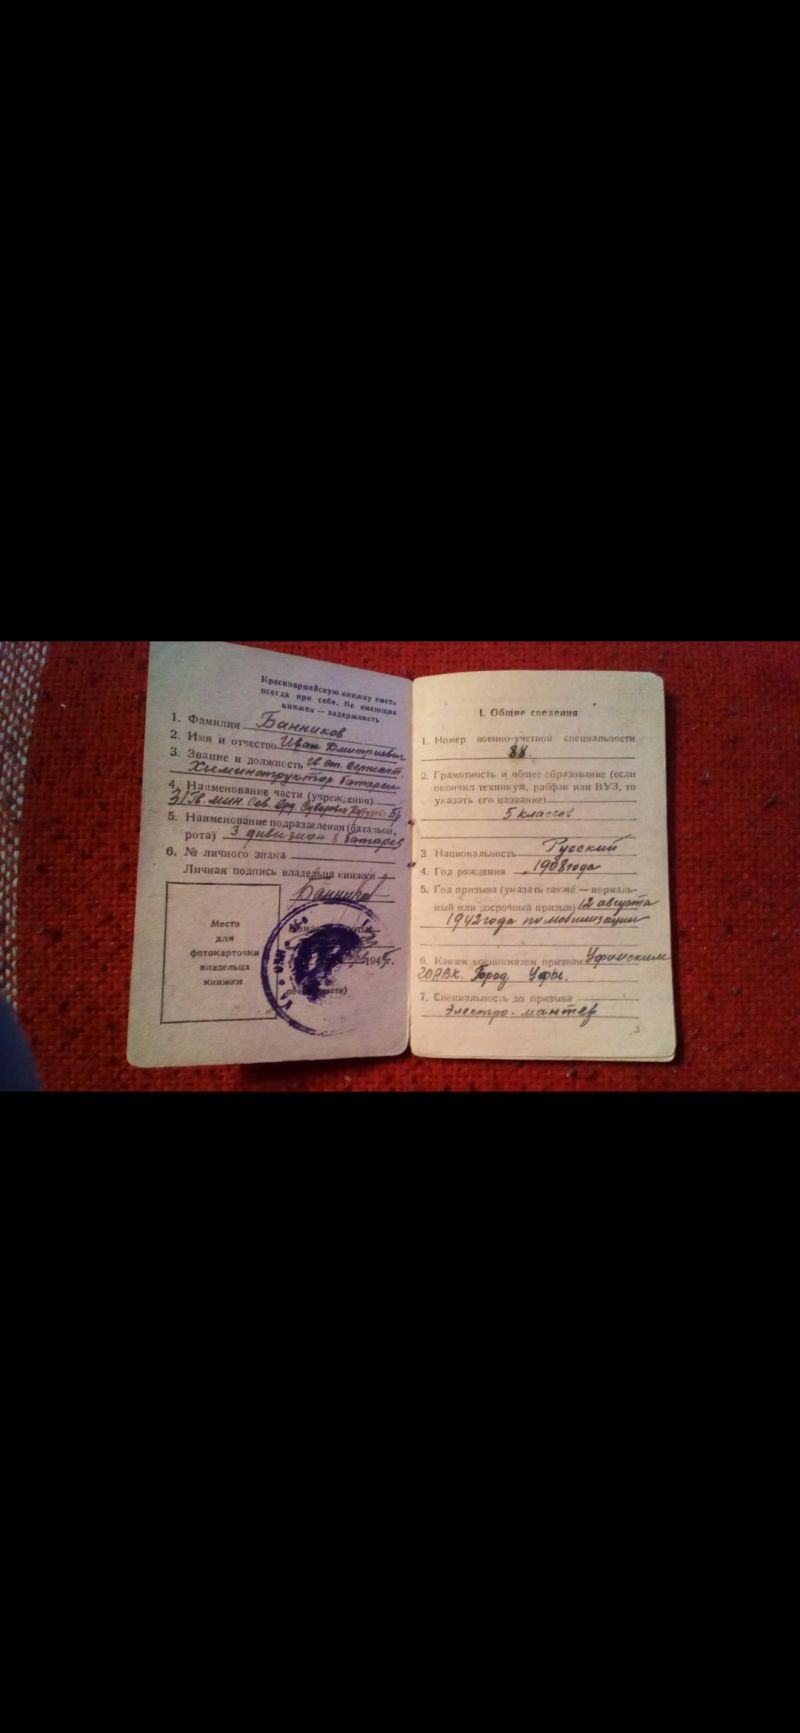 Красноармейскую книжку иметь
всегда при себе. Не имеющих
книжек — задерживать
1. Фамилия Банников
2. Имя и отчество Иван Дмитриевич
3. Звание и должность гв. ст. сержант.
Хименструктор батареи
4. Наименование части (учреждения)
31 Гв. мин. Сев. Орд. Суворова Кутузова Бр
5. Наименование подразделения (батальон,
рота) 3 дивизион 8 батарея
6. № личного знака
Личная подпись владельца книжки
Банников
Место
для
фотокарточки
владельца
книжки
194 г.
I. Общие сведения
1. Номер военно-учетной специальности
88.
2. Грамотность и общее образование (если
окончил техникум, рабфак или ВУЗ, то
указать его название)
5 классов
3 Национальность Русский
4. Год рождения 1908 года
5. Год призыва (указать также — нормаль-
ный или досрочный призыв) 12 августа
1942 года по мобилизации
6. Каким военкоматом призван Уфимским
Город Уфы.
7. Специальность до призыва
Электро-мантер
3